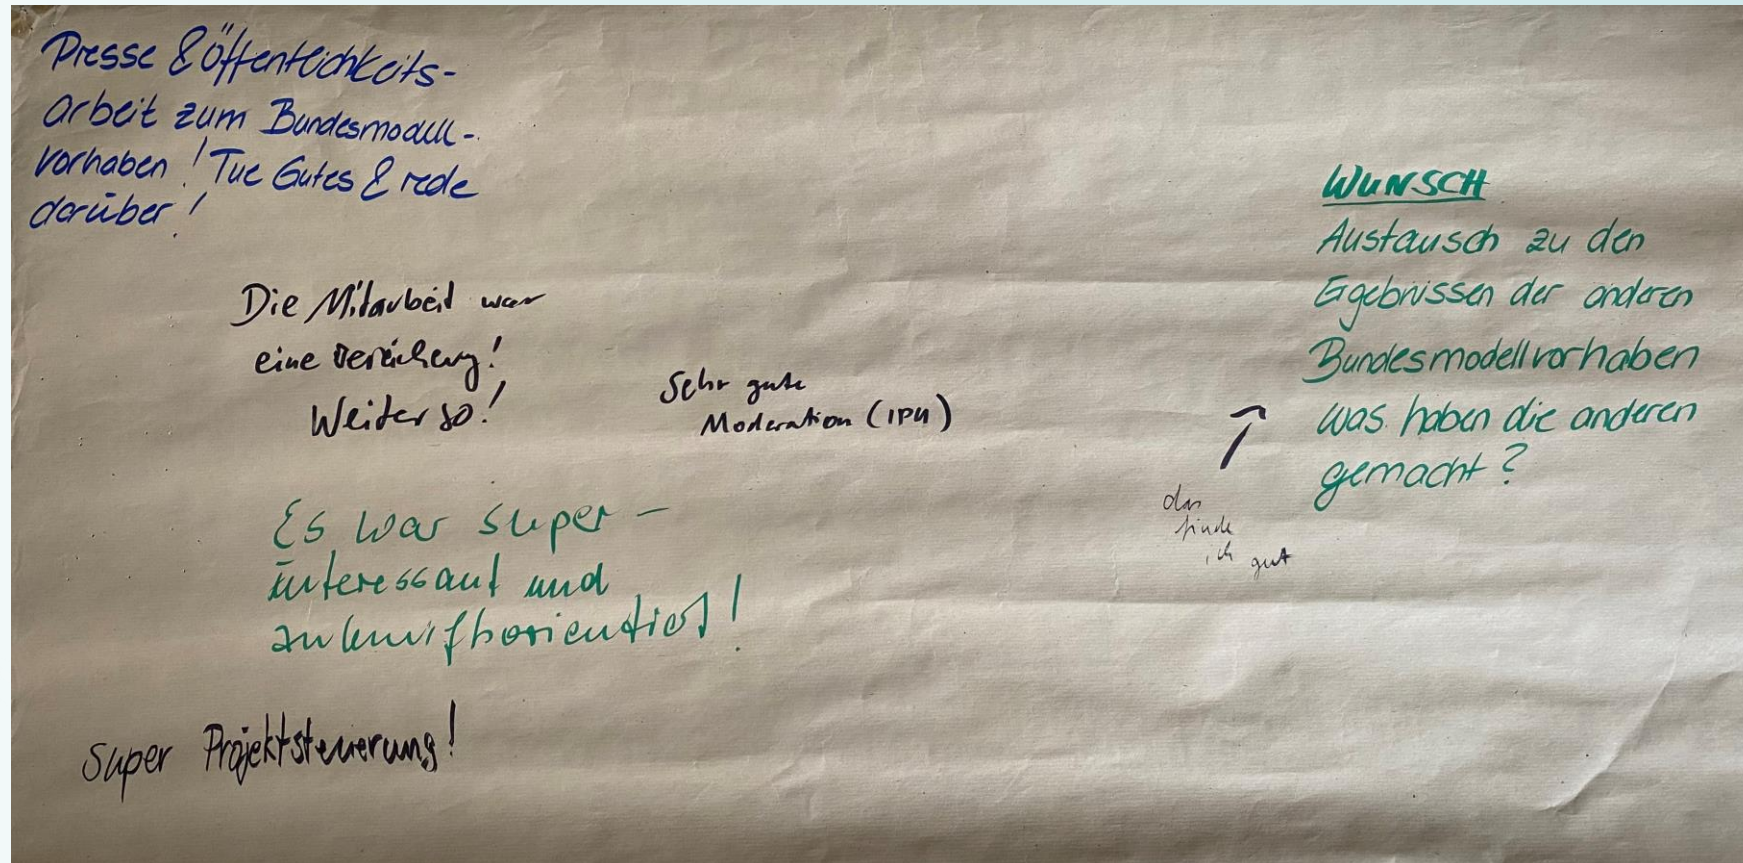 Presse & Öffentlichkeits-
arbeit zum Bundesmodell-
vorhaben! Tue Gutes & rede
darüber!
Die Mitarbeit war
eine Bereicherung!
Weiter so!
Sehr gute
Moderation (IPU)
Es war super -
interessant und
zukunftsorientiert!
Super Projektsteuerung!
WUNSCH
Austausch zu den
Ergebnissen der anderen
Bundesmodellvorhaben
was haben die anderen
gemacht?
das
finde
ich gut